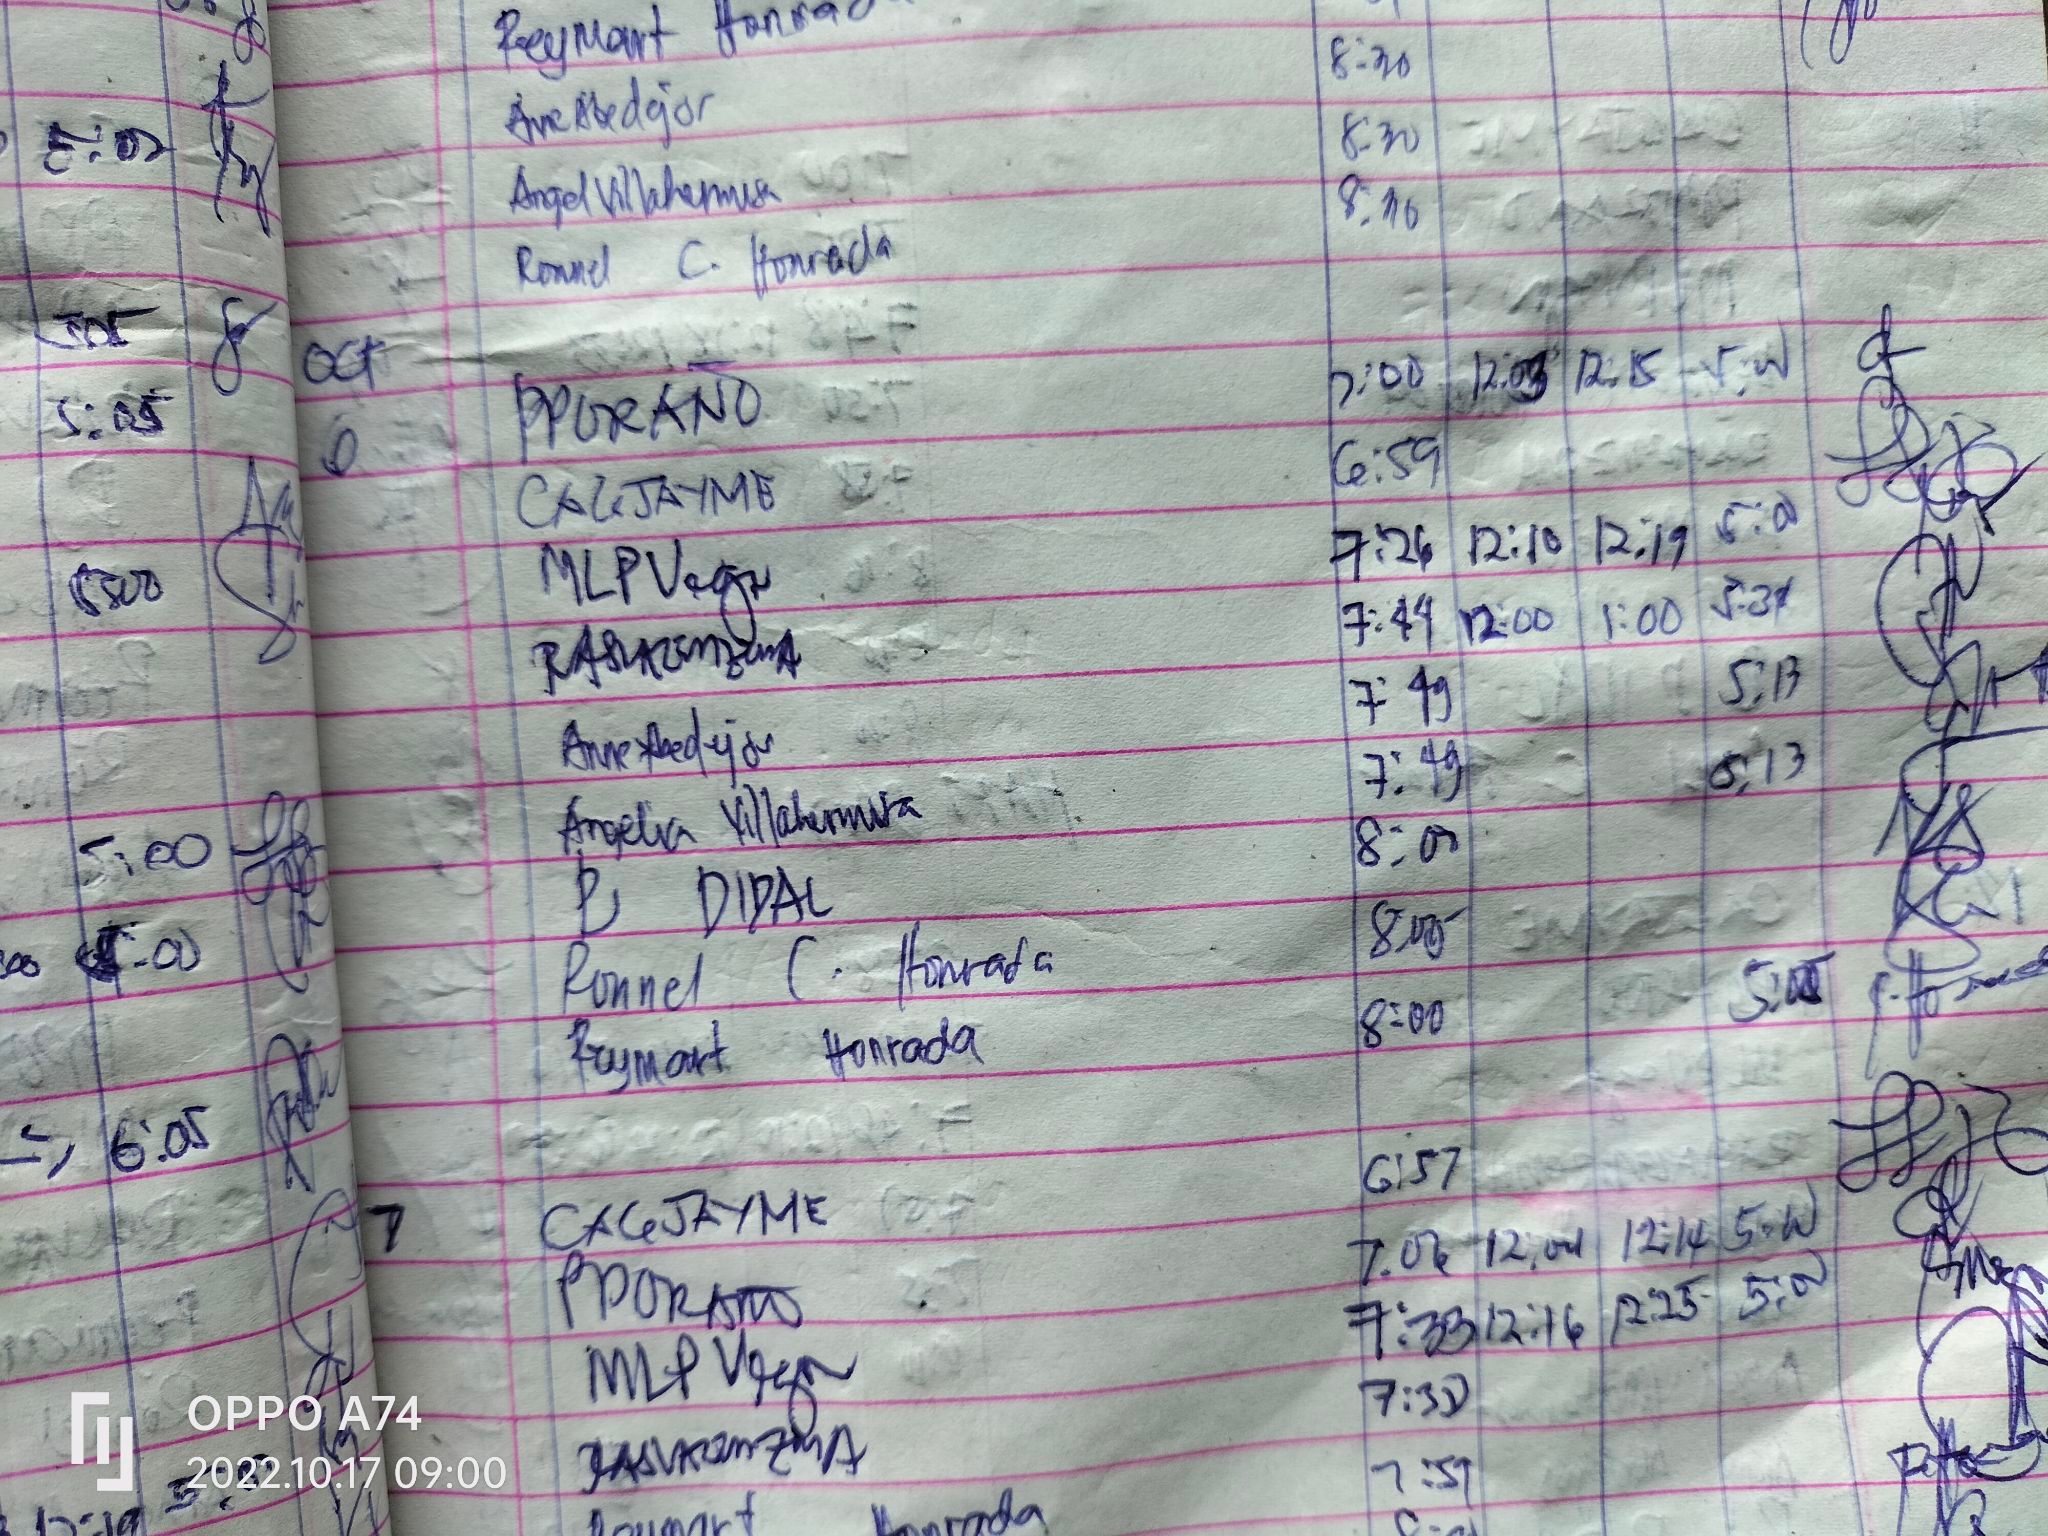 Reymart Honrada
8:30
Anne Abedejor 8:30
Angel Villahermosa 8:30
Ronnel C. Honrada
Oct
6 PPORAÑO 7:00 12:03 12:15 5:00
CAGJAYME 6:59
MLPVega 7:26 12:10 12:19 5:00
7:44 12:00 1:00 5:31
Anne Abedejor 7:49 5:13
Angelica Villahermosa 7:49 5:13
DIDAL 8:00
Ronnel C. Honrada 8:05
Reymart Honrada 8:00 5:05
7 CAGJAYME 6:57
PPORAÑO 7:06 12:04 12:14 5:00
MLPVega 7:33 12:16 12:25 5:00
7:38
Reymart Honrada 7:59
5:00
5:05
5:05
5:00
5:00
5:00
6:05
12:19
OPPO A74
2022.10.17 09:00